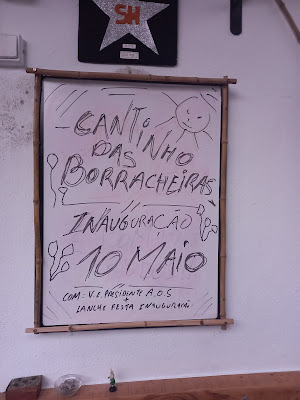 SH
CANTINHO
DAS
BORRACHEIRAS
INAUGURAÇÃO
10 MAIO
COM - V.E. PRESIDENTE A.O.S
+
LANCHE FESTA INAUGURAÇÃO